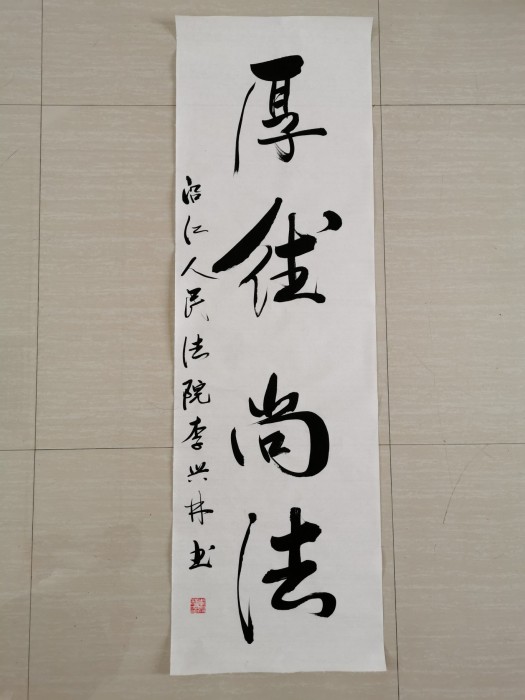 厚德尚法
沿江人民法院李兴林书